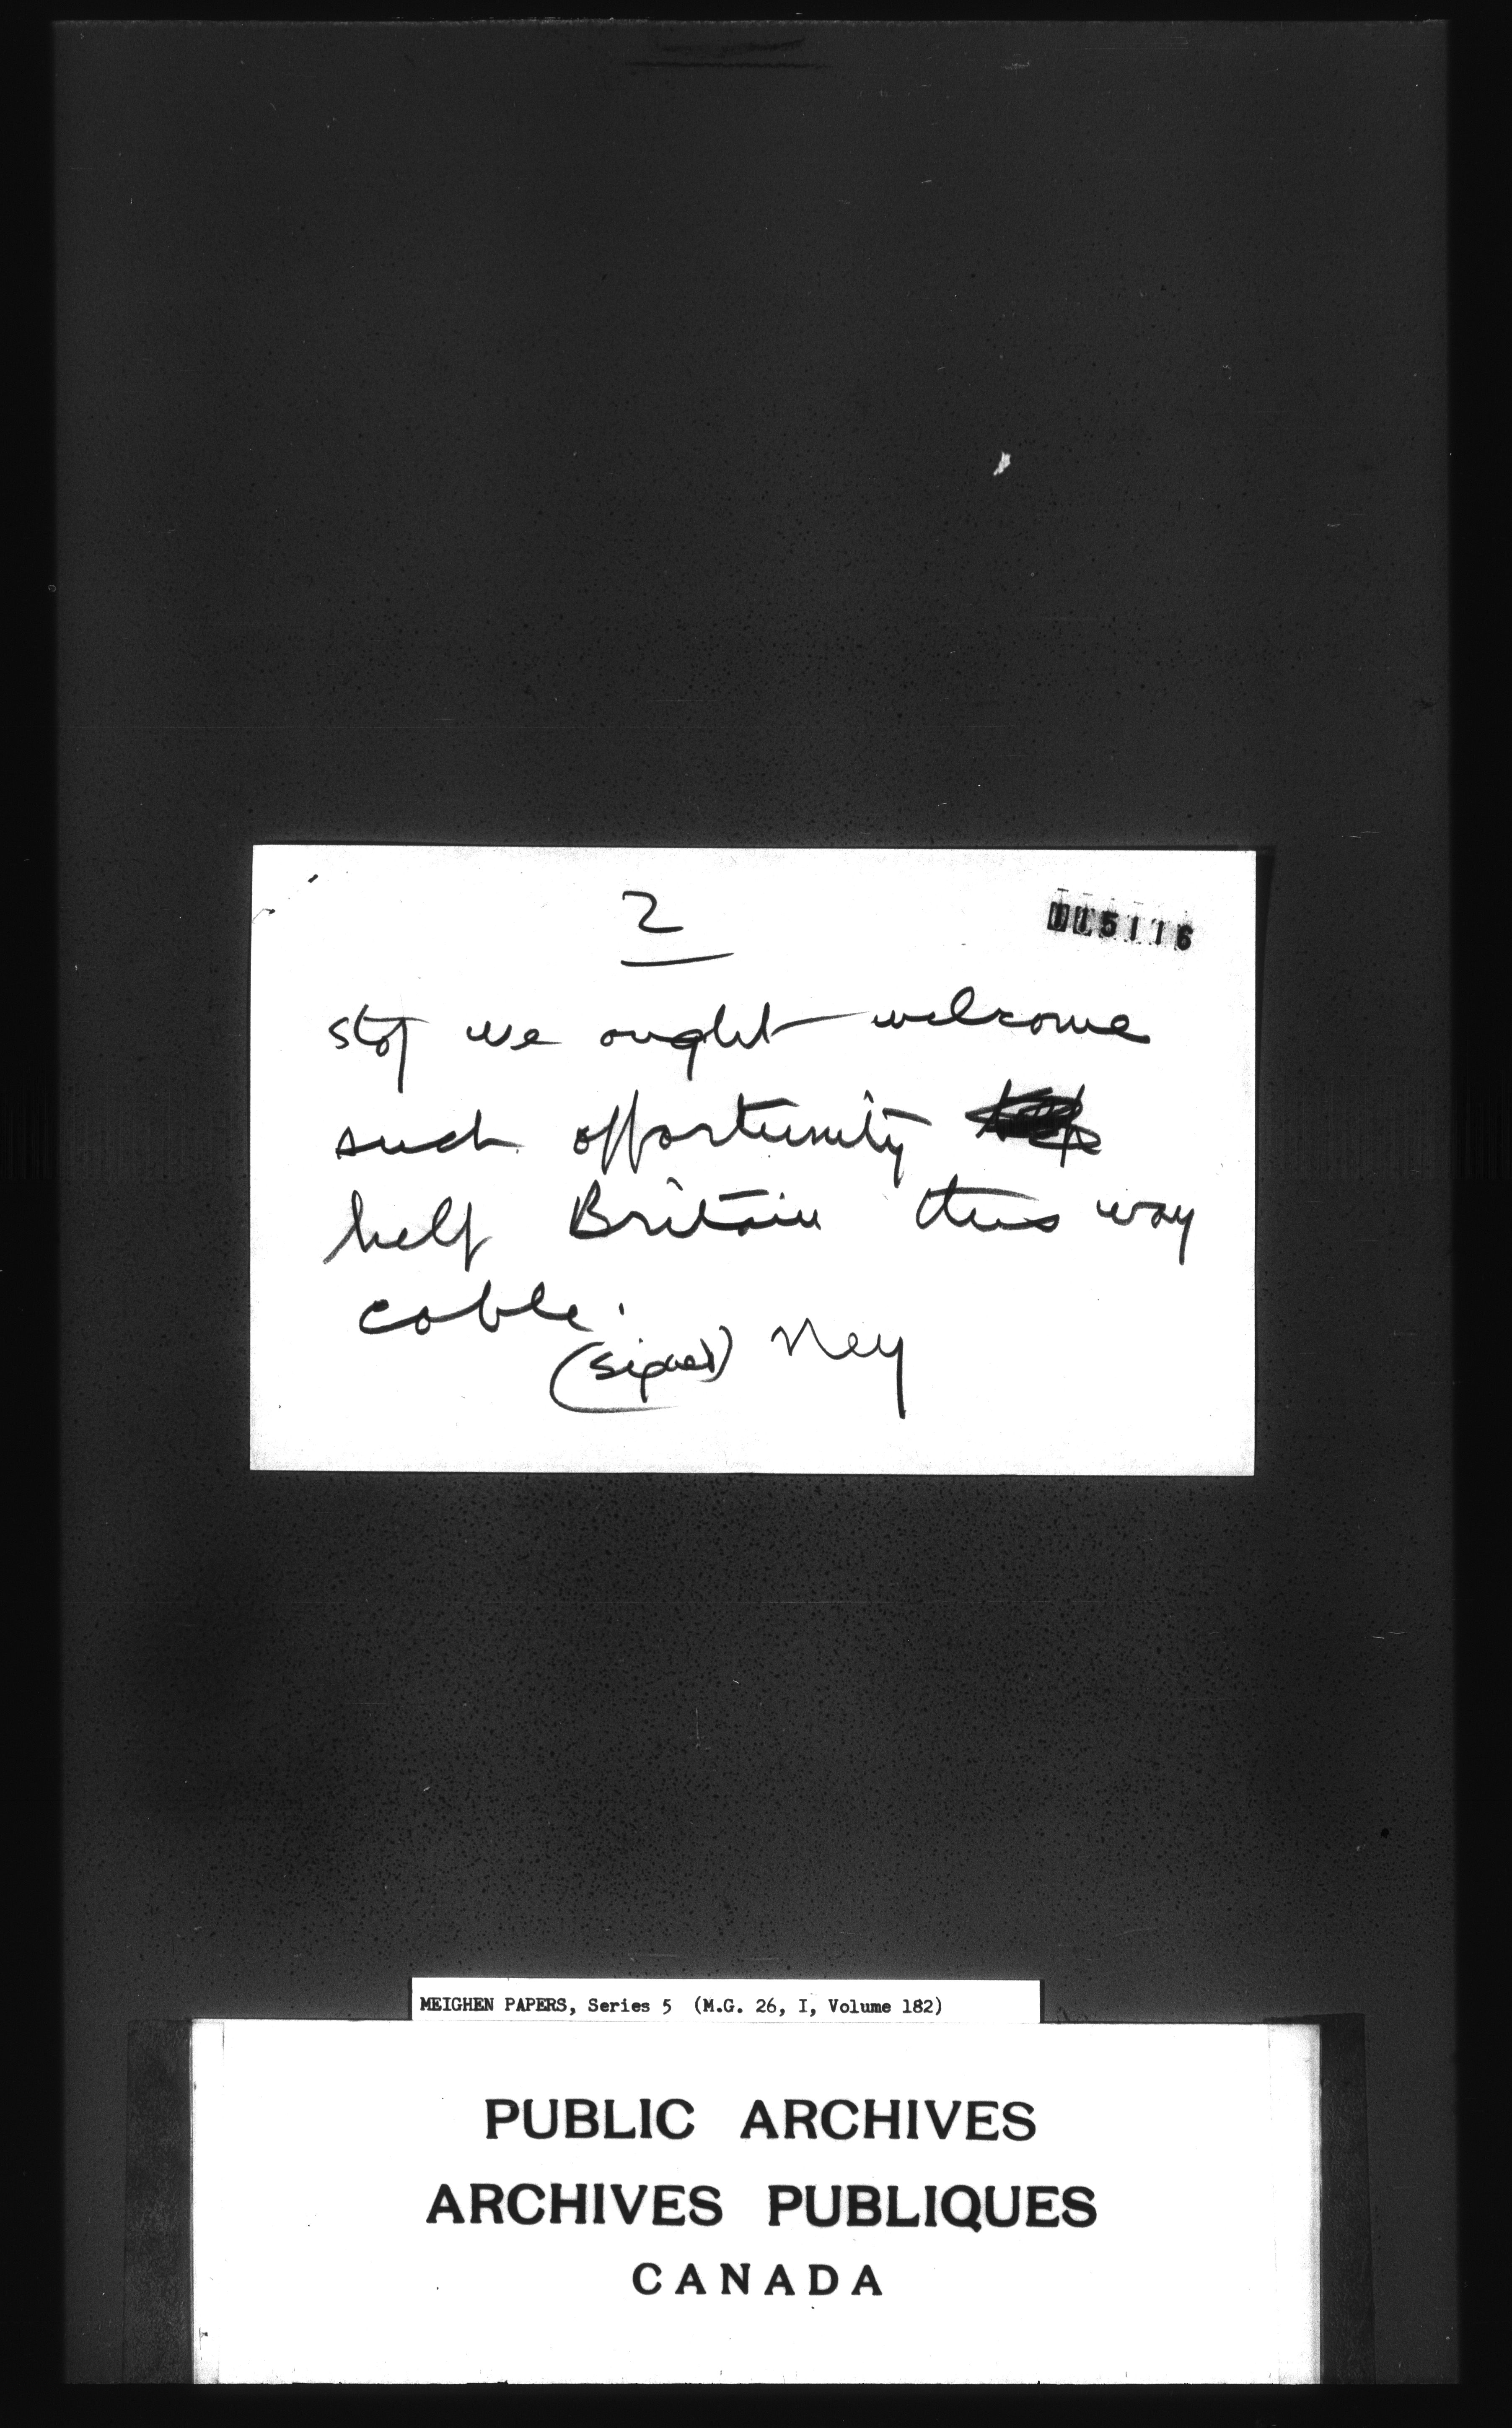 2
115116
stop we ought welcome
such opportunity
help Britain this way
cable.
(signed) Ney
MEIGHEN PAPERS, Series 5 (M.G. 26, I, Volume 182)
PUBLIC ARCHIVES
ARCHIVES PUBLIQUES
CANADA